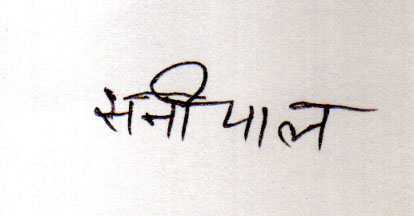 सनी पाल